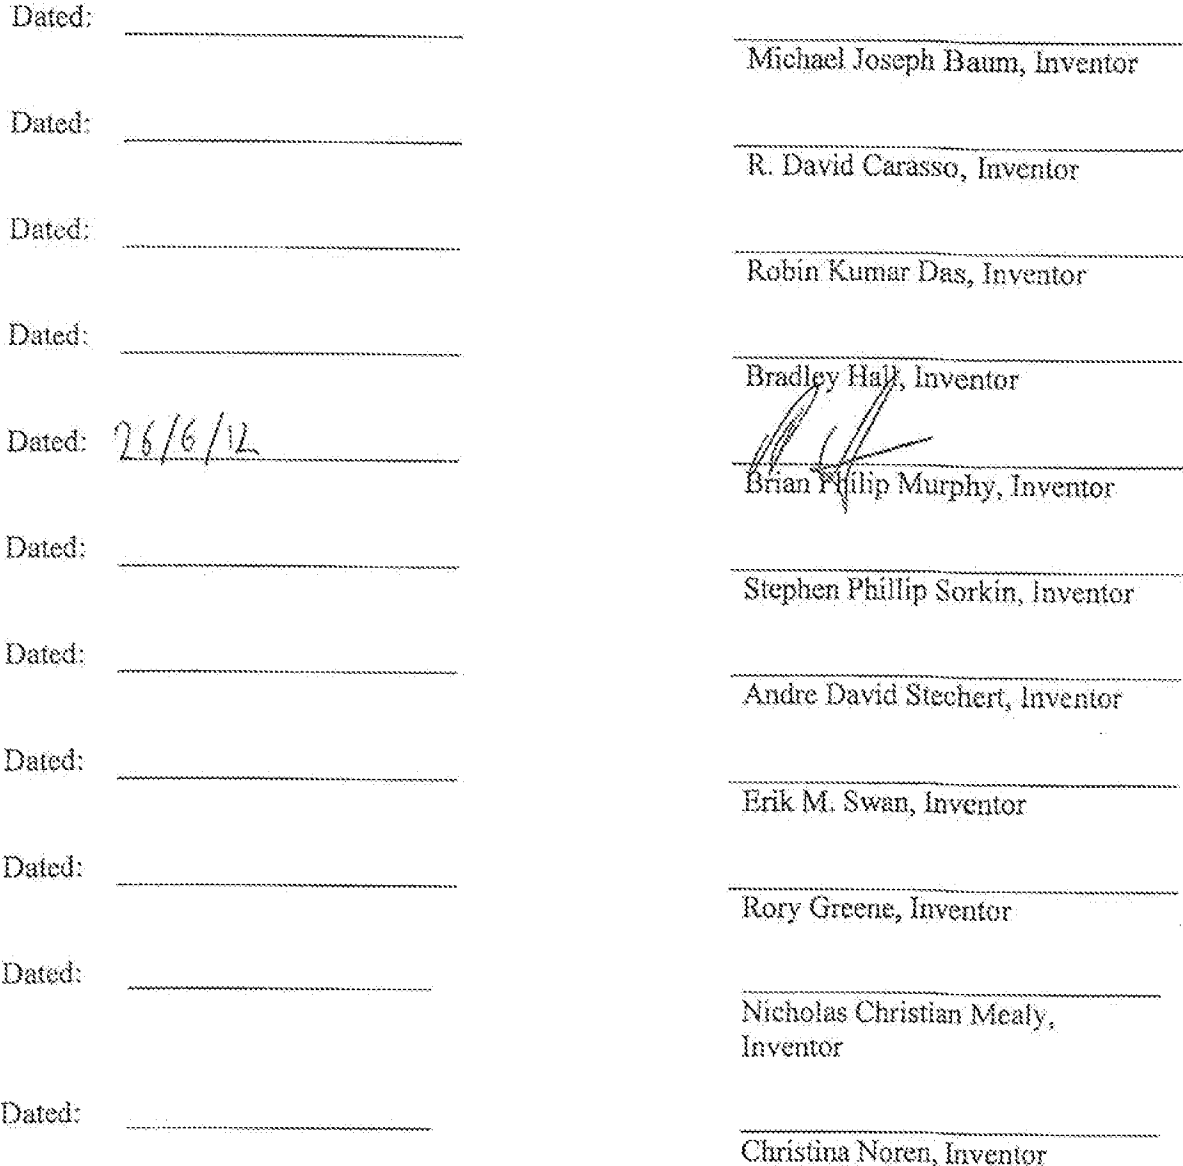 Dated:
Michael Joseph Baum, Inventor
Dated:
R. David Carasso, Inventor
Dated:
Robin Kumar Das, Inventor
Dated:
Bradley Hall, Inventor
Dated: 26/6/12
Brian Philip Murphy, Inventor
Dated:
Stephen Phillip Sorkin, Inventor
Dated:
Andre David Stechert, Inventor
Dated:
Erik M. Swan, Inventor
Dated:
Rory Greene, Inventor
Dated:
Nicholas Christian Mealy,
Inventor
Dated:
Christina Noren, Inventor